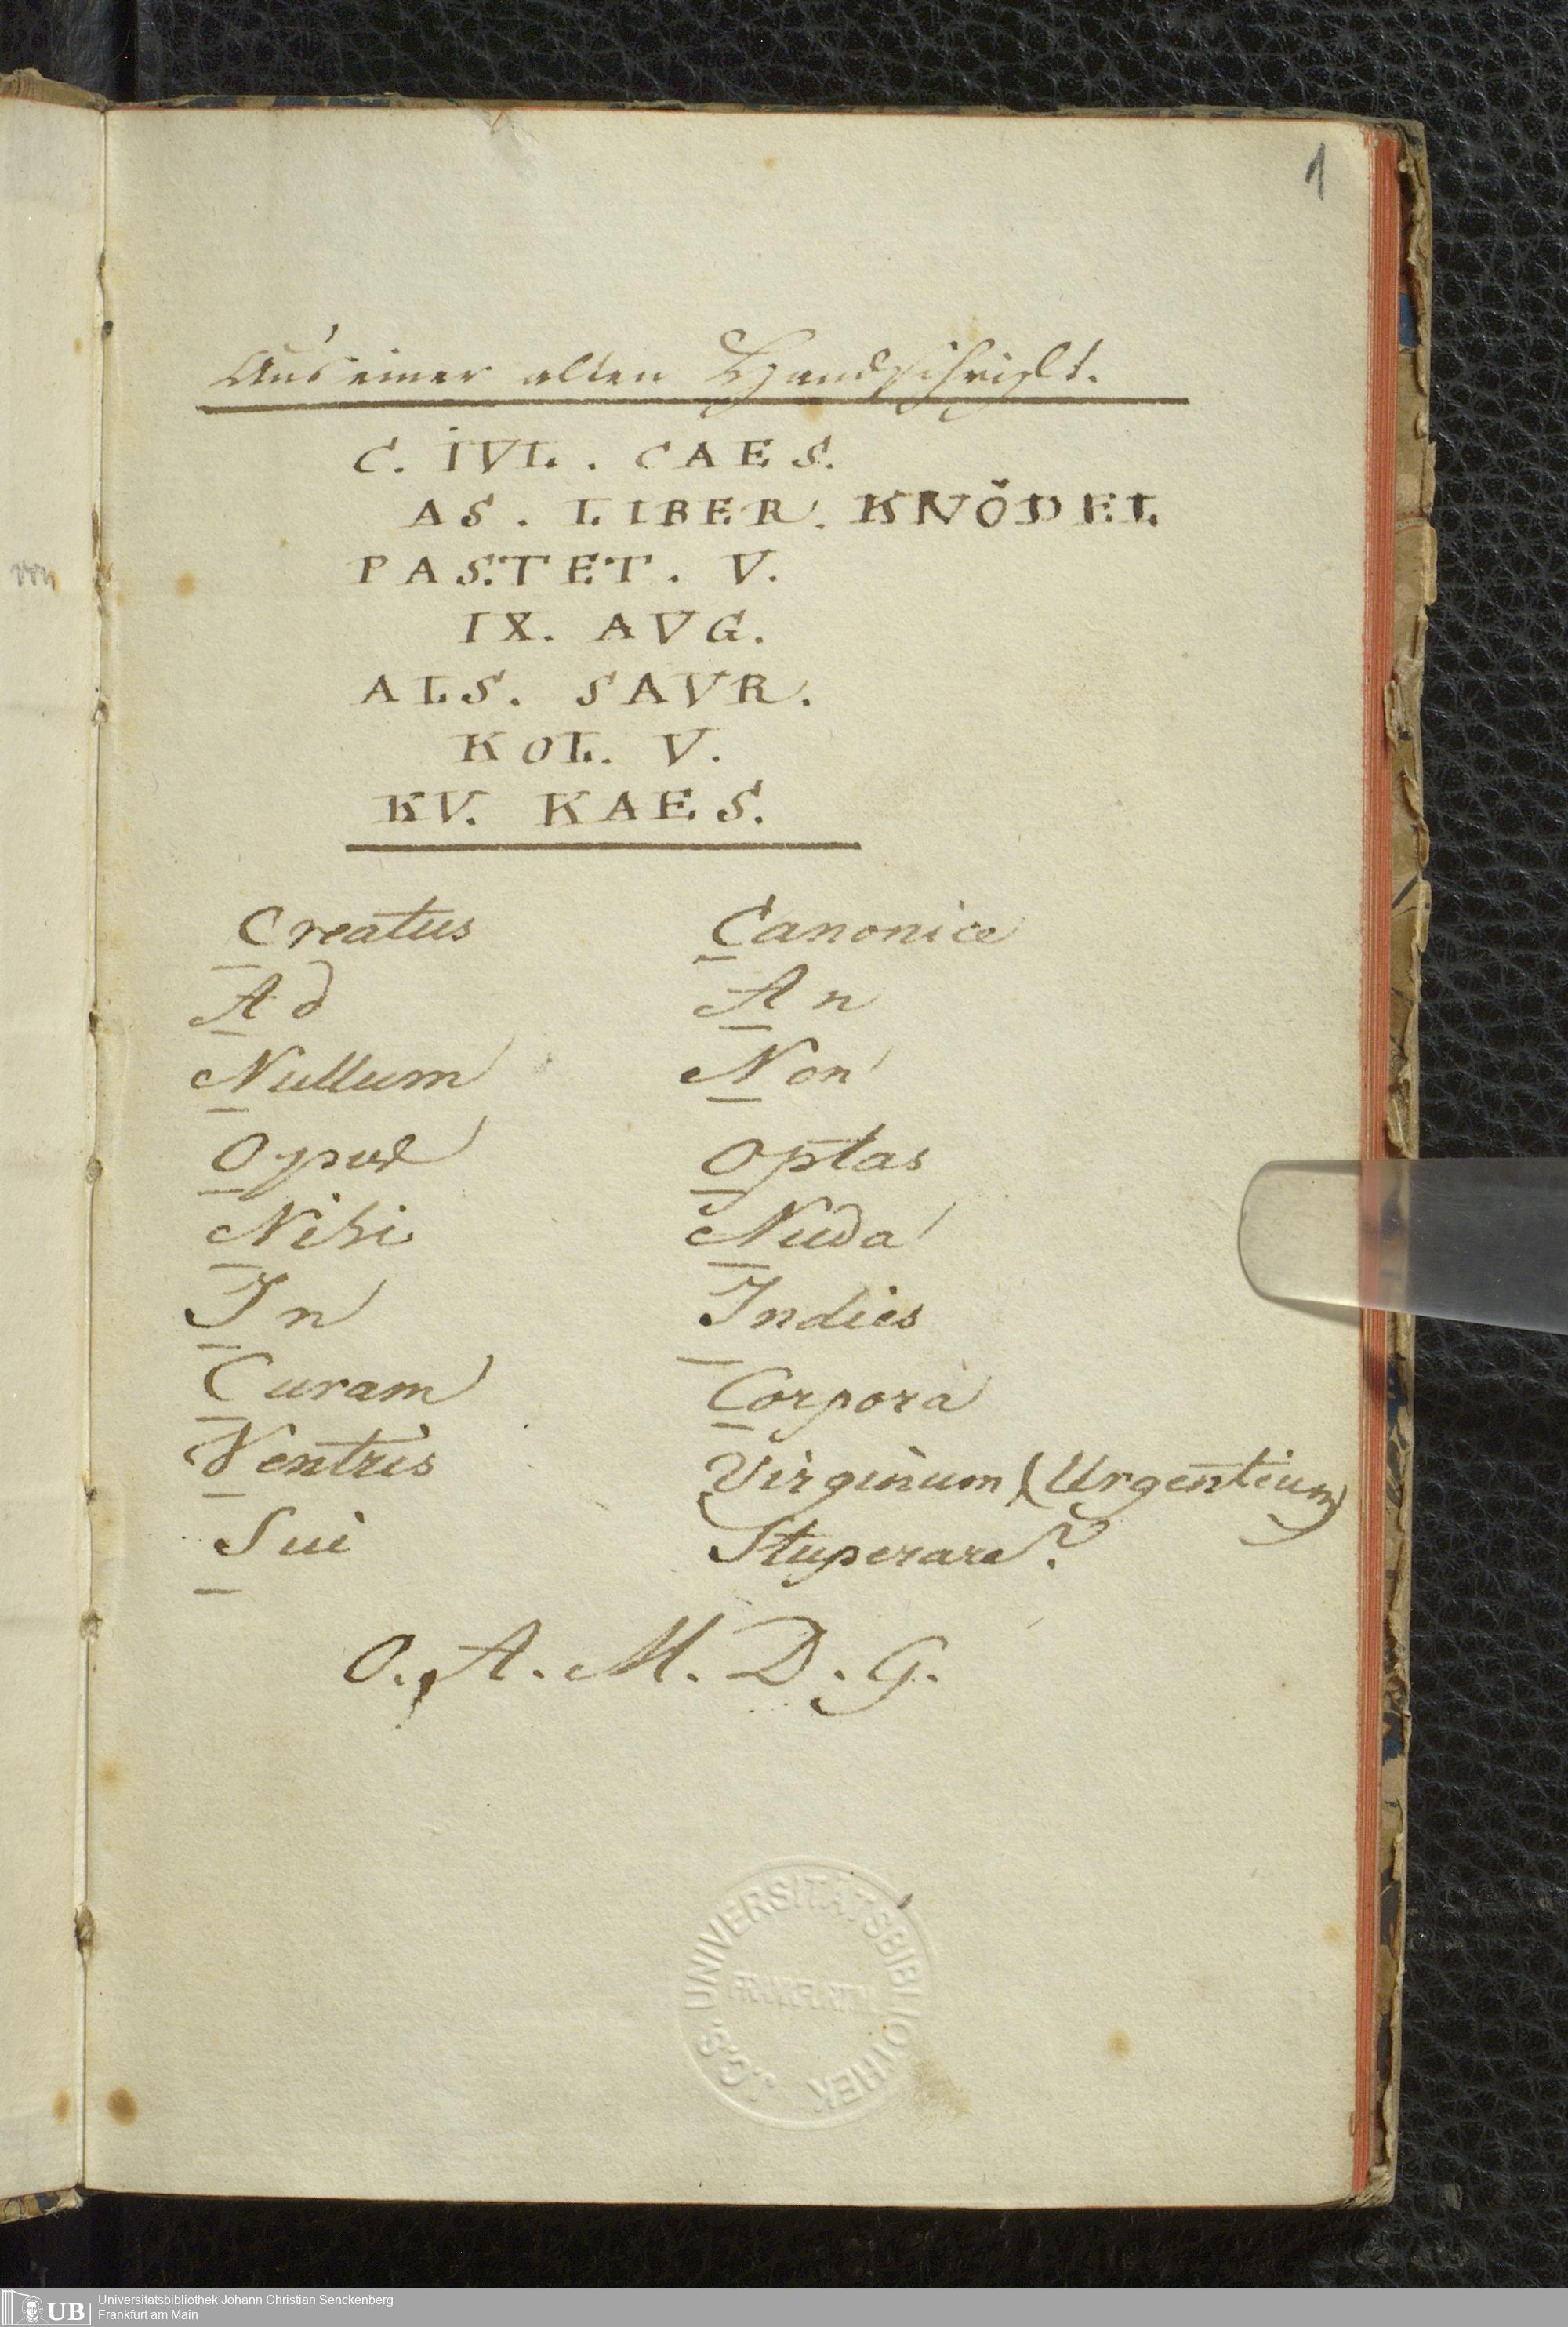 1
von
Aus einer alten Handschrift.
C. IVL. CAES.
AS. LIBER. KNÖDEL
PASTET. V.
IX. AVG.
ALS. SAVR.
KOL. V.
KV. KAES.
Creatus Canonice
Ad An
Nullum Non
Opus Optas
Nisi Nuda
In Indies
Curam Corpora
Ventris Virginum (Urgentium)
Sui Stuperare?
O. A. M. D. G.
UNIVERSITÄTSBIBLIOTHEK
FRANKFURT M.
J.C.S.
UB
Universitätsbibliothek Johann Christian Senckenberg
Frankfurt am Main